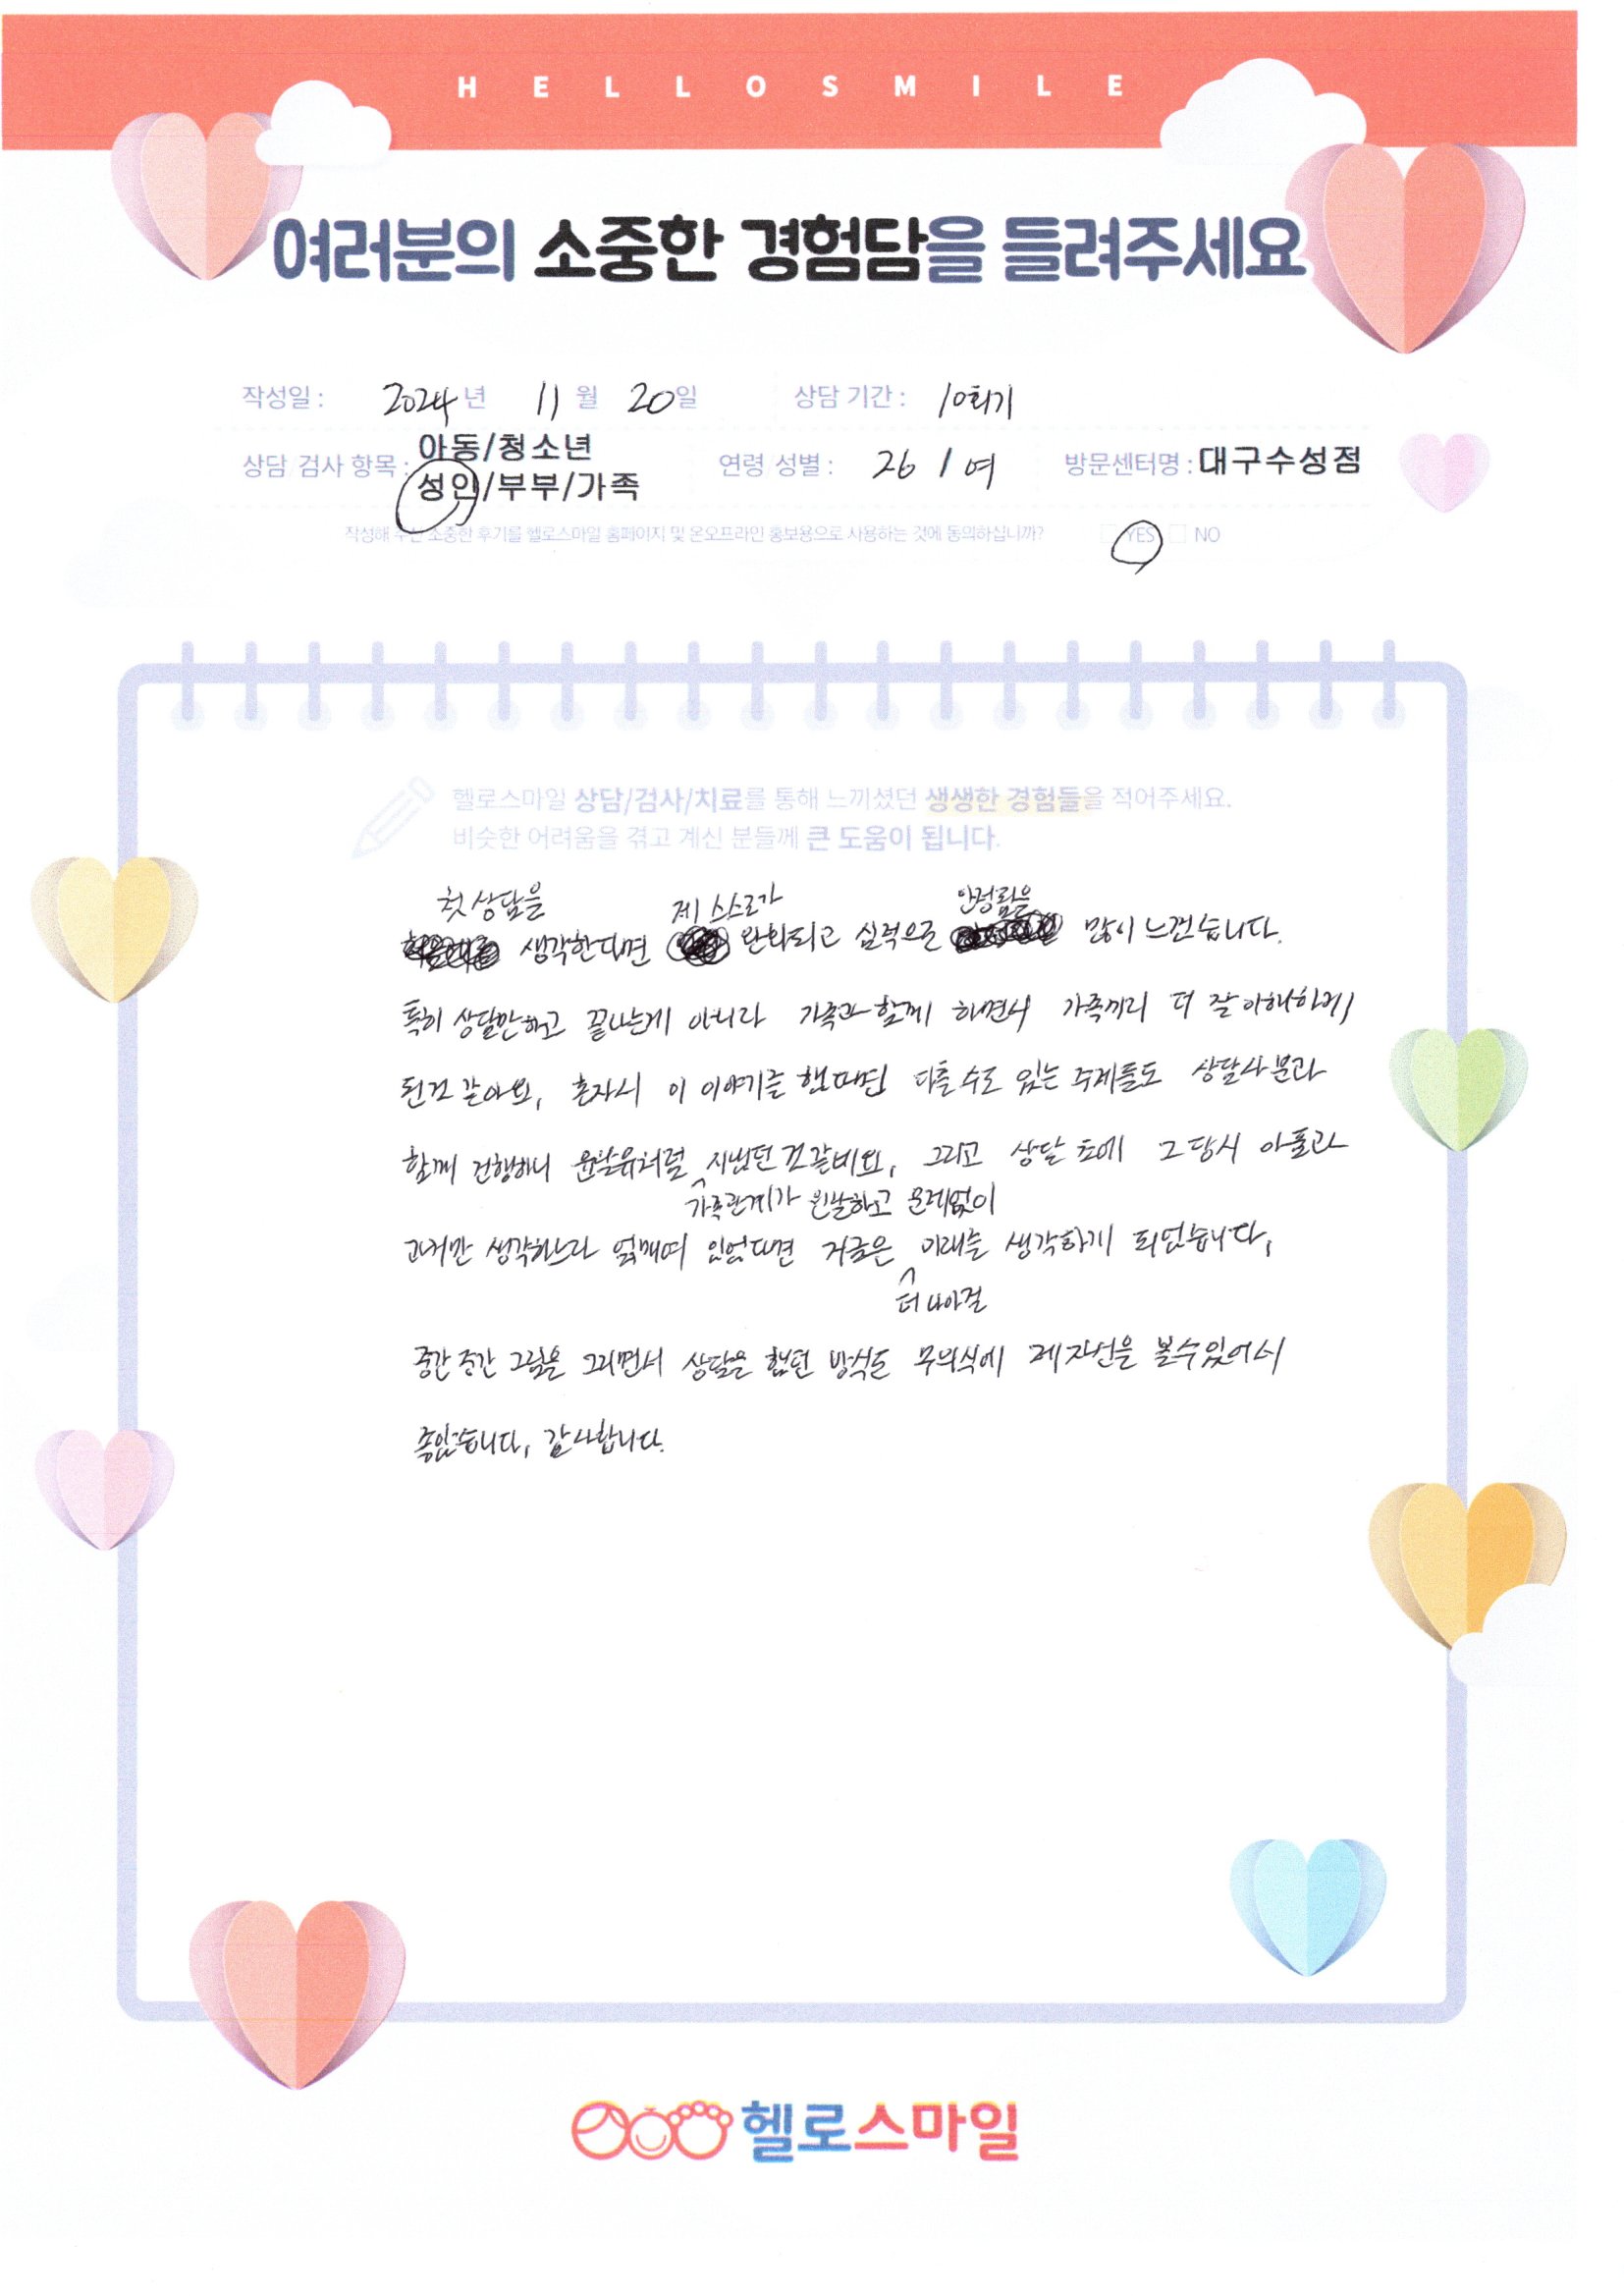 HELLOSMILE
여러분의 소중한 경험담을 들려주세요
작성일 : 2024년 11월 20일 상담 기간 : 10회기
상담 검사 항목 : 아동/청소년
성인/부부/가족
연령 성별 : 26 / 여 방문센터명 : 대구수성점
작성해 주신 소중한 후기를 헬로스마일 홈페이지 및 온오프라인 홍보용으로 사용하는 것에 동의하십니까? YES NO
헬로스마일 상담/검사/치료를 통해 느끼셨던 생생한 경험들을 적어주세요.
비슷한 어려움을 겪고 계신 분들께 큰 도움이 됩니다.
첫 상담을 제 스스로가 안정됨을
생각한다면 완화되고 심적으로 많이 느낀습니다.
특히 상담만하고 끝나는게 아니라 가족과 함께 하면서 가족끼리 더 잘 이해하게
된것 같아요, 혼자서 이 이야기를 했다면 다툴 수도 있는 주제들도 상담사분과
함께 진행하니 윤활유처럼 지냈던 것같네요, 그리고 상담 초에 그 당시 아픔과
가족관계가 원활하고 문제없이
과거만 생각하느라 얽매여 있었다면 지금은 미래를 생각하게 되었습니다,
더 나아질
중간 중간 그림을 그리면서 상담을 했던 방식도 무의식에 제 자신을 볼수있어서
좋았습니다, 감사합니다.
헬로스마일